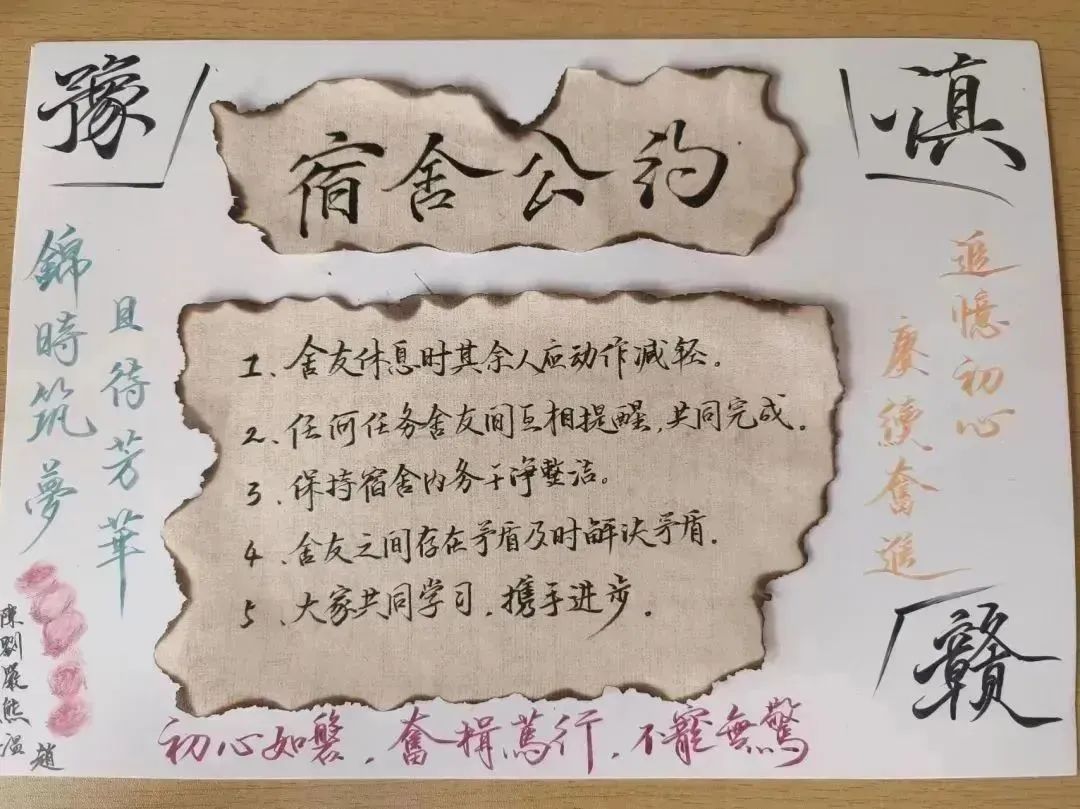 豫
滇
宿舍公约
錦時筑夢
且待芳華
追憶初心
赓續奮進
1、舍友休息时其余人应动作减轻。
2、任何任务舍友间互相提醒，共同完成。
3、保持宿舍内务干净整洁。
4、舍友之间存在矛盾及时解决矛盾。
5、大家共同学习，携手进步。
贛
初心如磐，奮楫篤行，不寵無驚
陳劉嚴熊温趙